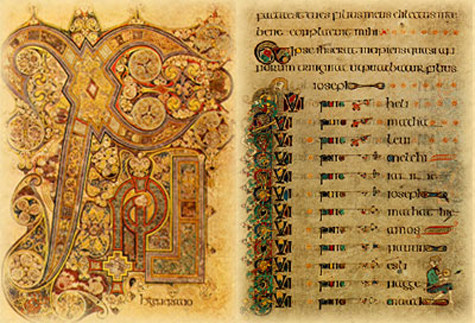 h generatio
facta est tu es filius meus dilectus in te
bene conplacuit mihi
Et ipse ihs erat incipiens quasi an
norum triginta ut putabatur filius
ioseph
QUI fuit heli
QUI fuit matha
QUI fuit leui
QUI fuit melchi
QUI fuit
QUI fuit ioseph
QUI fuit
QUI fuit amos
QUI fuit
QUI fuit esli
QUI fuit nagge
QUI fuit